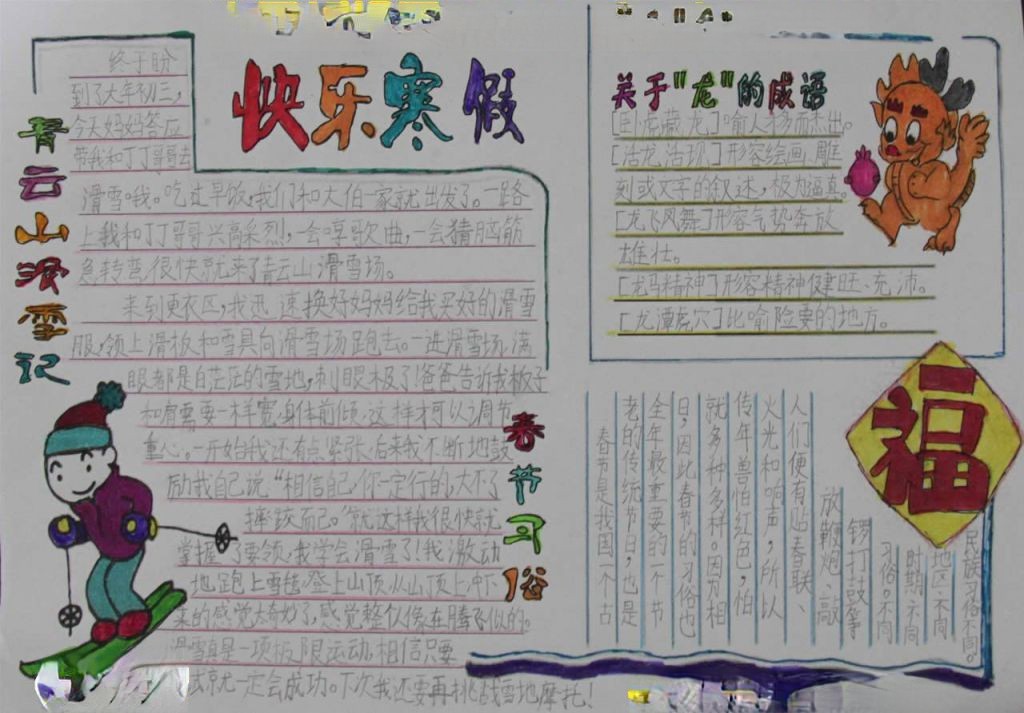 快乐寒假
青云山滑雪记
终于盼
到了大年初三，
今天妈妈答应
带我和丁丁哥哥去
滑雪。我。吃过早饭，我们和大伯一家就出发了。一路
上我和丁丁哥哥兴高采烈，一会哼歌曲，一会猜脑筋
急转弯，很快就来了青云山滑雪场。
来到更衣区，我迅速换好妈妈给我买好的滑雪
服，领上滑板和雪具向滑雪场跑去。一进滑雪场，满
眼都是白茫茫的雪地，刺眼极了！爸爸告诉我板子
和肩需要一样宽，身体前倾，这样才可以调节
重心。一开始我还有点紧张，后来我不断地鼓
励我自己说“相信自己你一定行的，大不了
摔跤而已。”就这样我很快就
掌握了要领，我学会滑雪了！我激动
地跑上雪毯，登上山顶，从山顶上冲下
来的感觉太奇妙了，感觉整个人像在腾飞似的。
滑雪真是一项极限运动，相信只要
就一定会成功。下次我还要再挑战雪地摩托！
关于"龙"的成语
[卧虎藏龙]喻人才多而杰出。
[活龙活现]形容绘画、雕
刻或文字的叙述，极为逼真。
[龙飞凤舞]形容气势奔放
雄壮。
[龙马精神]形容精神健旺、充沛。
[龙潭虎穴]比喻险要的地方。
福
春节习俗
春节是我国一个古
老的传统节日，也是
全年最重要的一个节
日，因此春节的习俗也
就多种多样。因为相
传年兽怕红色，怕
火光和响声，所以
人们便有贴春联、
放鞭炮、敲
锣打鼓等
习俗。不同
时期、不同
地区、不同
民族习俗不同。